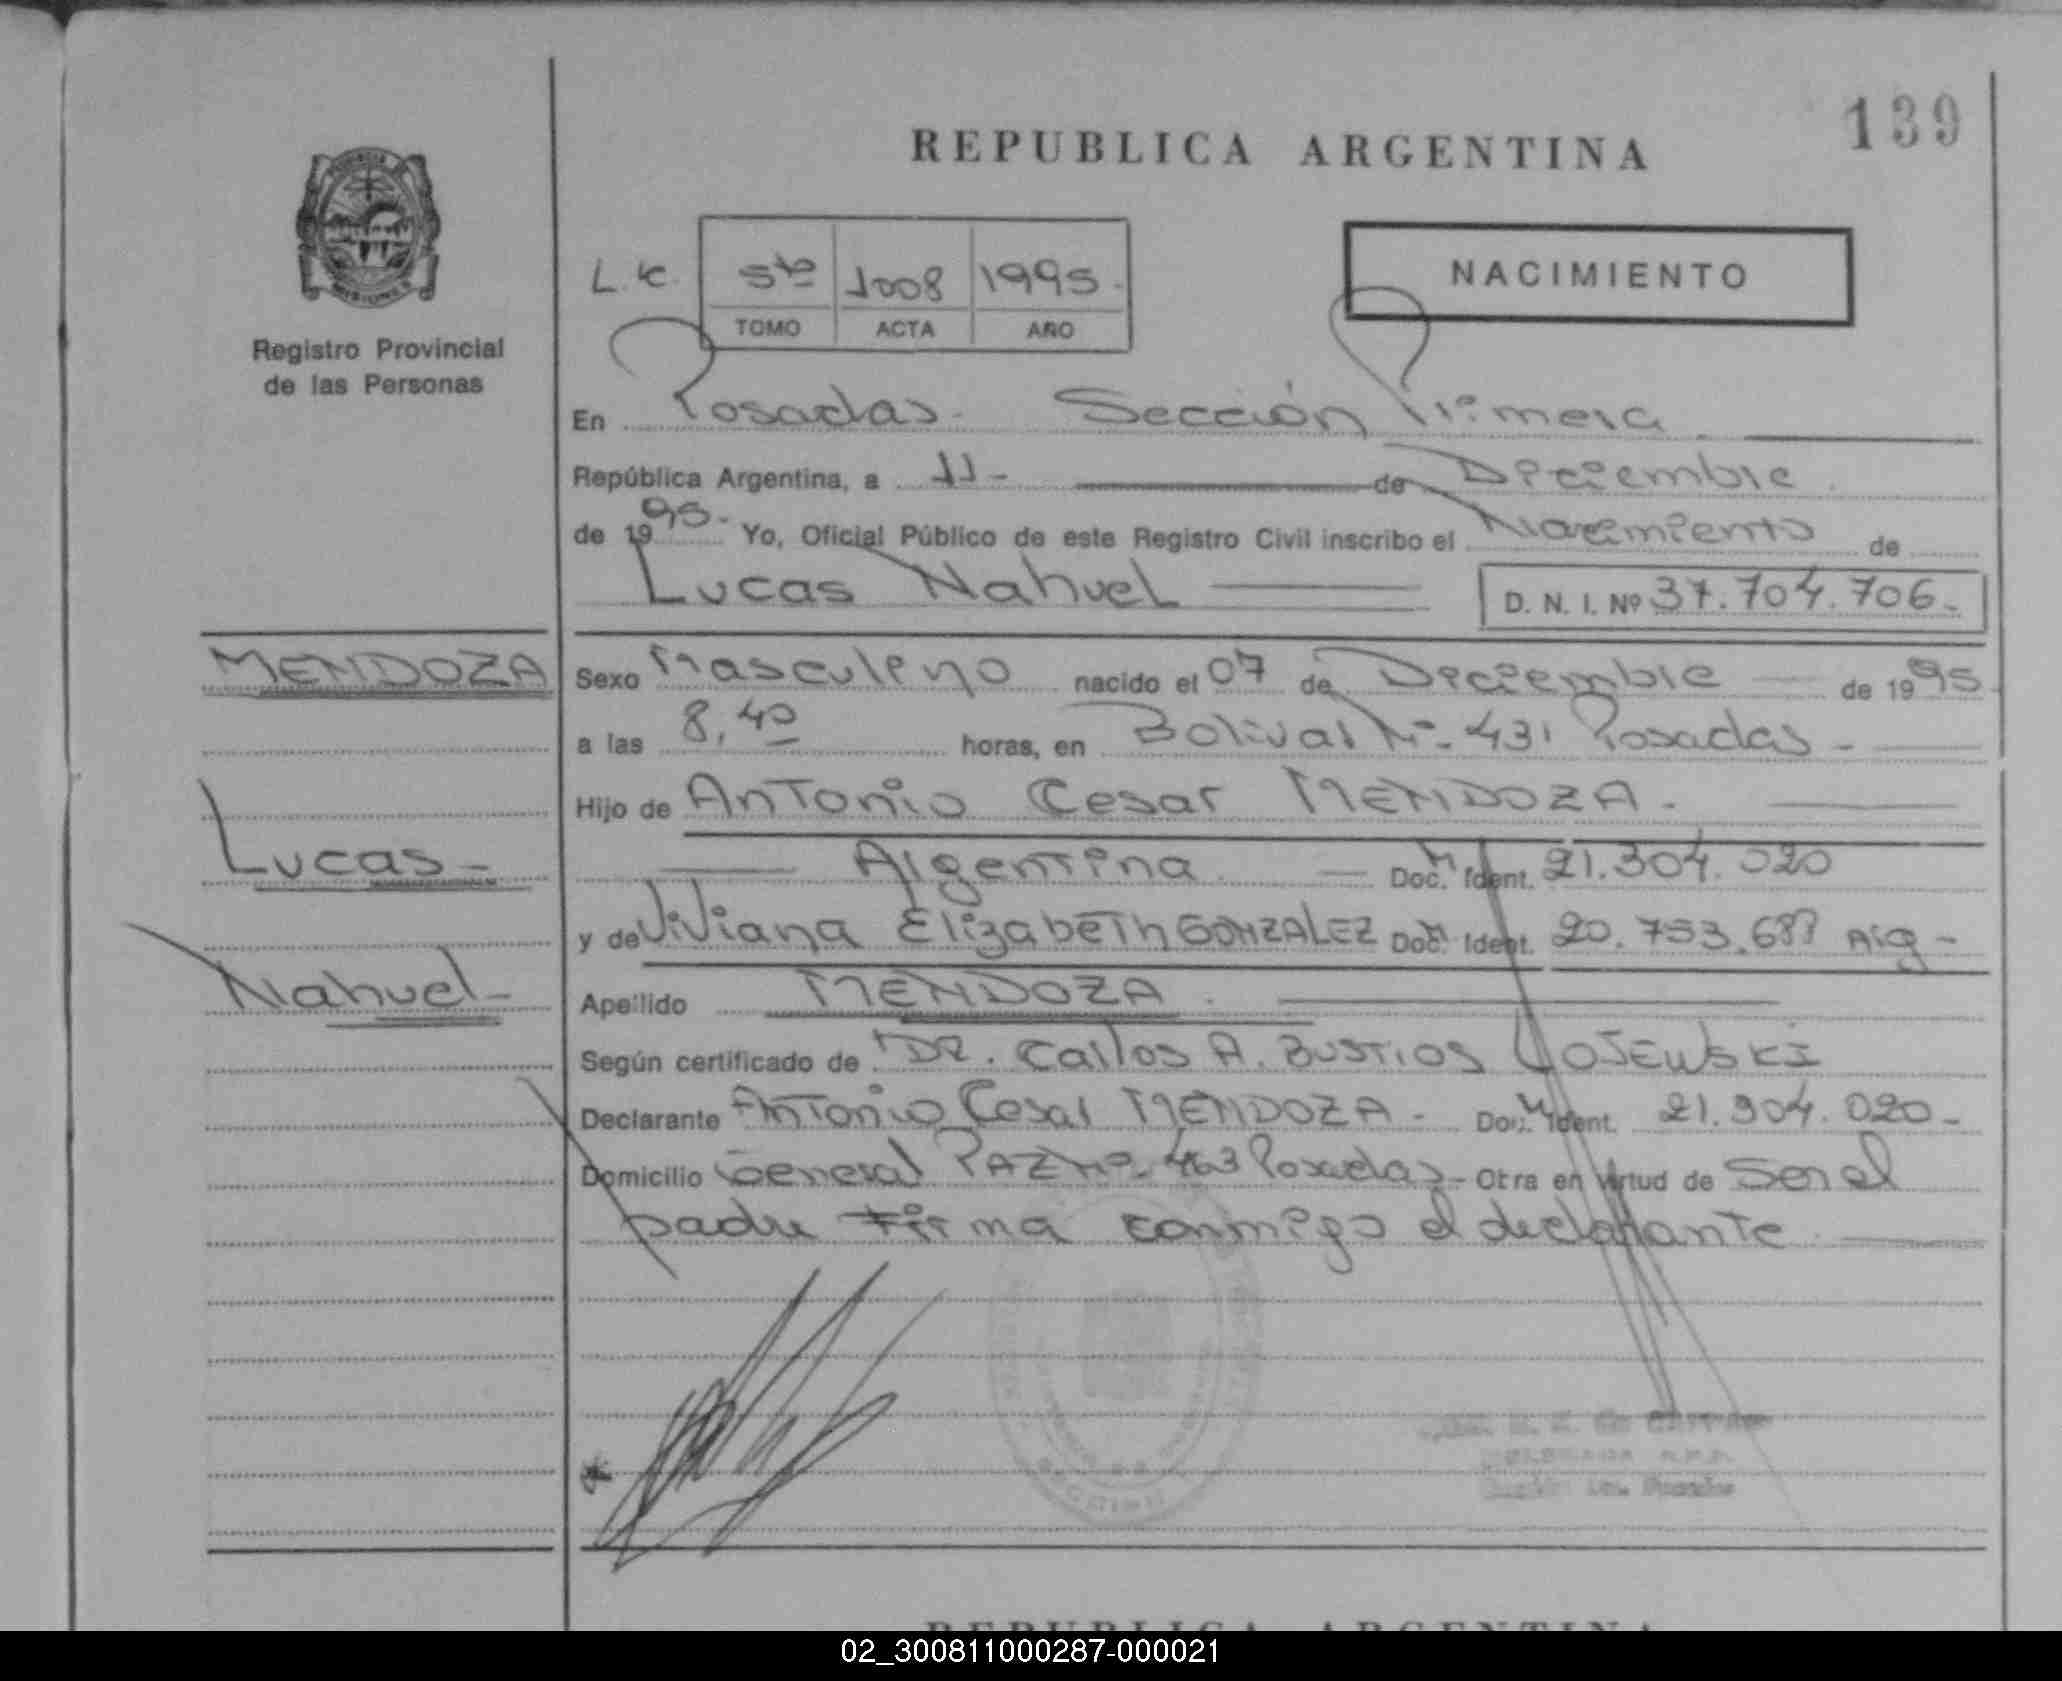 139
REPUBLICA ARGENTINA
MISIONES
Registro Provincial
de las Personas
L.c. 5to 1008 1995.
TOMO ACTA AÑO
NACIMIENTO
En Posadas. Sección Primera.
República Argentina, a 11- de Diciembre
de 1995. Yo, Oficial Público de este Registro Civil inscribo el Nacimiento de
Lucas Nahuel D. N. I. Nº 37.704.706.
MENDOZA
Sexo Masculino nacido el 07 de Diciembre de 1995
a las 8,40 horas, en Bolivar Nº 431 Posadas -
Hijo de Antonio Cesar MENDOZA.
Lucas-
Argentina Doc. Ident. 21.304.020
y de Viviana Elizabeth GONZALEZ Doc. Ident. 20.753. Arg -
Nahuel-
Apellido MENDOZA.
Según certificado de DR. Carlos A. BUSTIOS LOJEWSKI
Declarante Antonio Cesar MENDOZA - Doc. Ident. 21.304.020-
Domicilio General PAZ Nº 463 Posadas- Otra en virtud de Ser el
padre Firma conmigo el declarante
REPUBLICA ARGENTINA
02_300811000287-000021